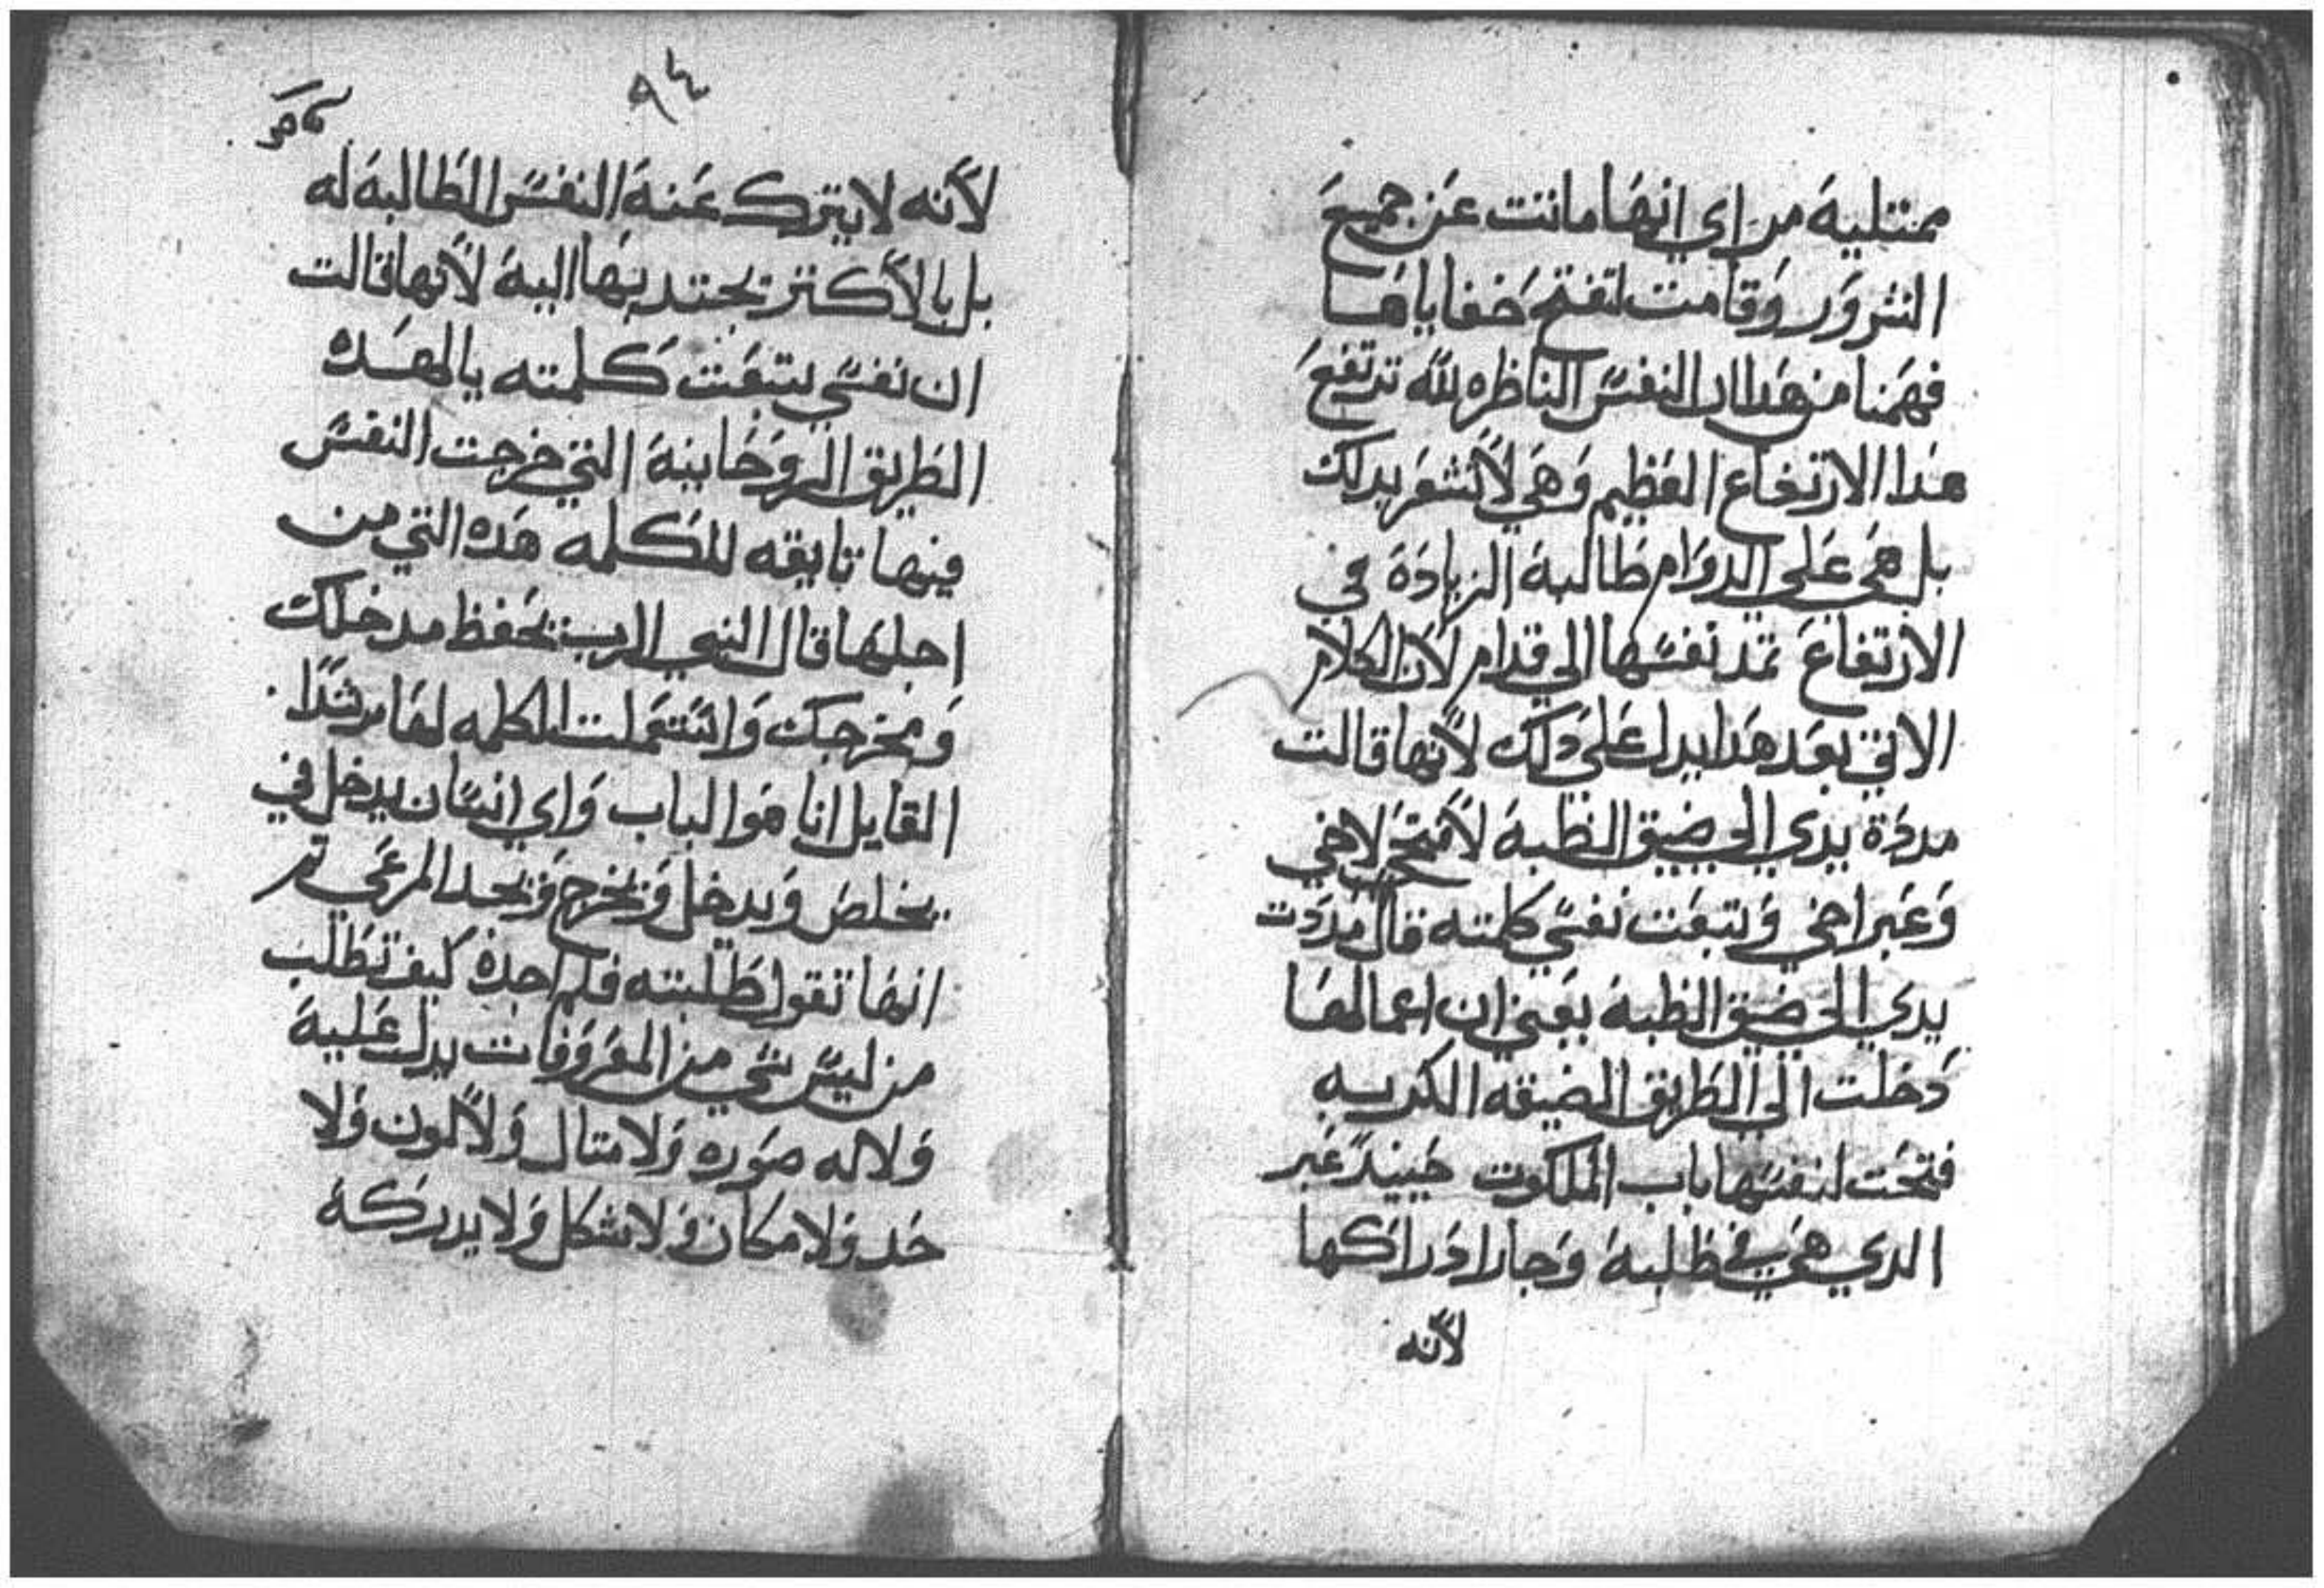 ممتليه مر اي انها ماتت عن جميع
الشرور وقامت لتفتح خفاياها
فهمنا من هدا ان النفس الناظره لله ترتفع
هدا الارتفاع العظيم وهي لا تشعر بدلك
بل هي علي الدوام طالبة الزيادة في
الارتفاع تمد نفسها الي قدام لان الكلام
الاتي بعد هدا يدل علي دلك لانها قالت
مددة يدي الي ضيق الظبة لافتح لاخي
وعبر اخي وتبعت نفسي كلمته قال مددت
يدي الي ضيق الظبة يعني ان اعمالها
دخلت الي الطريق الضيقه الكربه
فتحت لنفسها باب الملكوت حينيد عبر
الدي هي في طلبة وجاز ادراكها
لانه
٩٤
لانه لا يترك عنة النفس الطالبة له
بل بالاكتر يجتدبها الية لانها قالت
ان نفسي تبعت كلمته يا لهده
الطريق الروحانية التي خرجت النفس
فيها تابعه للكلمه هده التي من
اجلها قال النبي الرب يحفظ مدخلك
ومخرجك واستعملت الكلمه لها مرشدا
القايل انا هو الباب واي انسان يدخل في
يخلص ويدخل ويخرج ويجد المرعي تم
انها تقول طلبته فلم اجدة كيف تطلب
من ليس شي من المعروفات يدل علية
ولا له صوره ولا متال ولا لون ولا
حد ولا مكان ولا شكل ولا يدركة